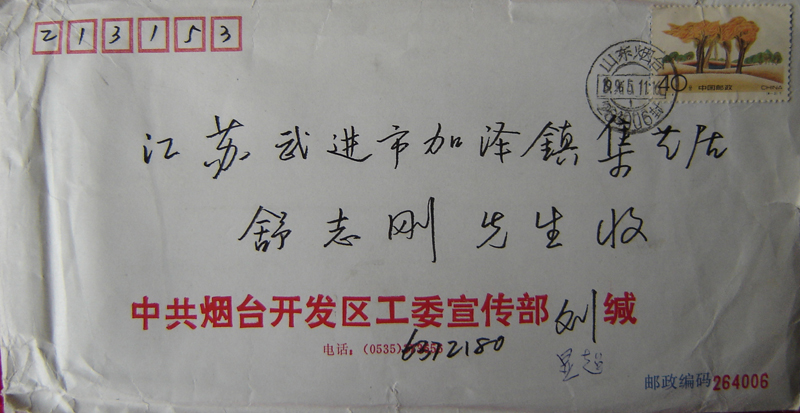 213153
山东烟台
1996.5.11.1
264006
40
中国邮政
CHINA
江苏武进市加泽鎮集艺居
舒志刚先生收
中共烟台开发区工委宣传部 刘 缄
电话：(0535) 6372180
邮政编码 264006